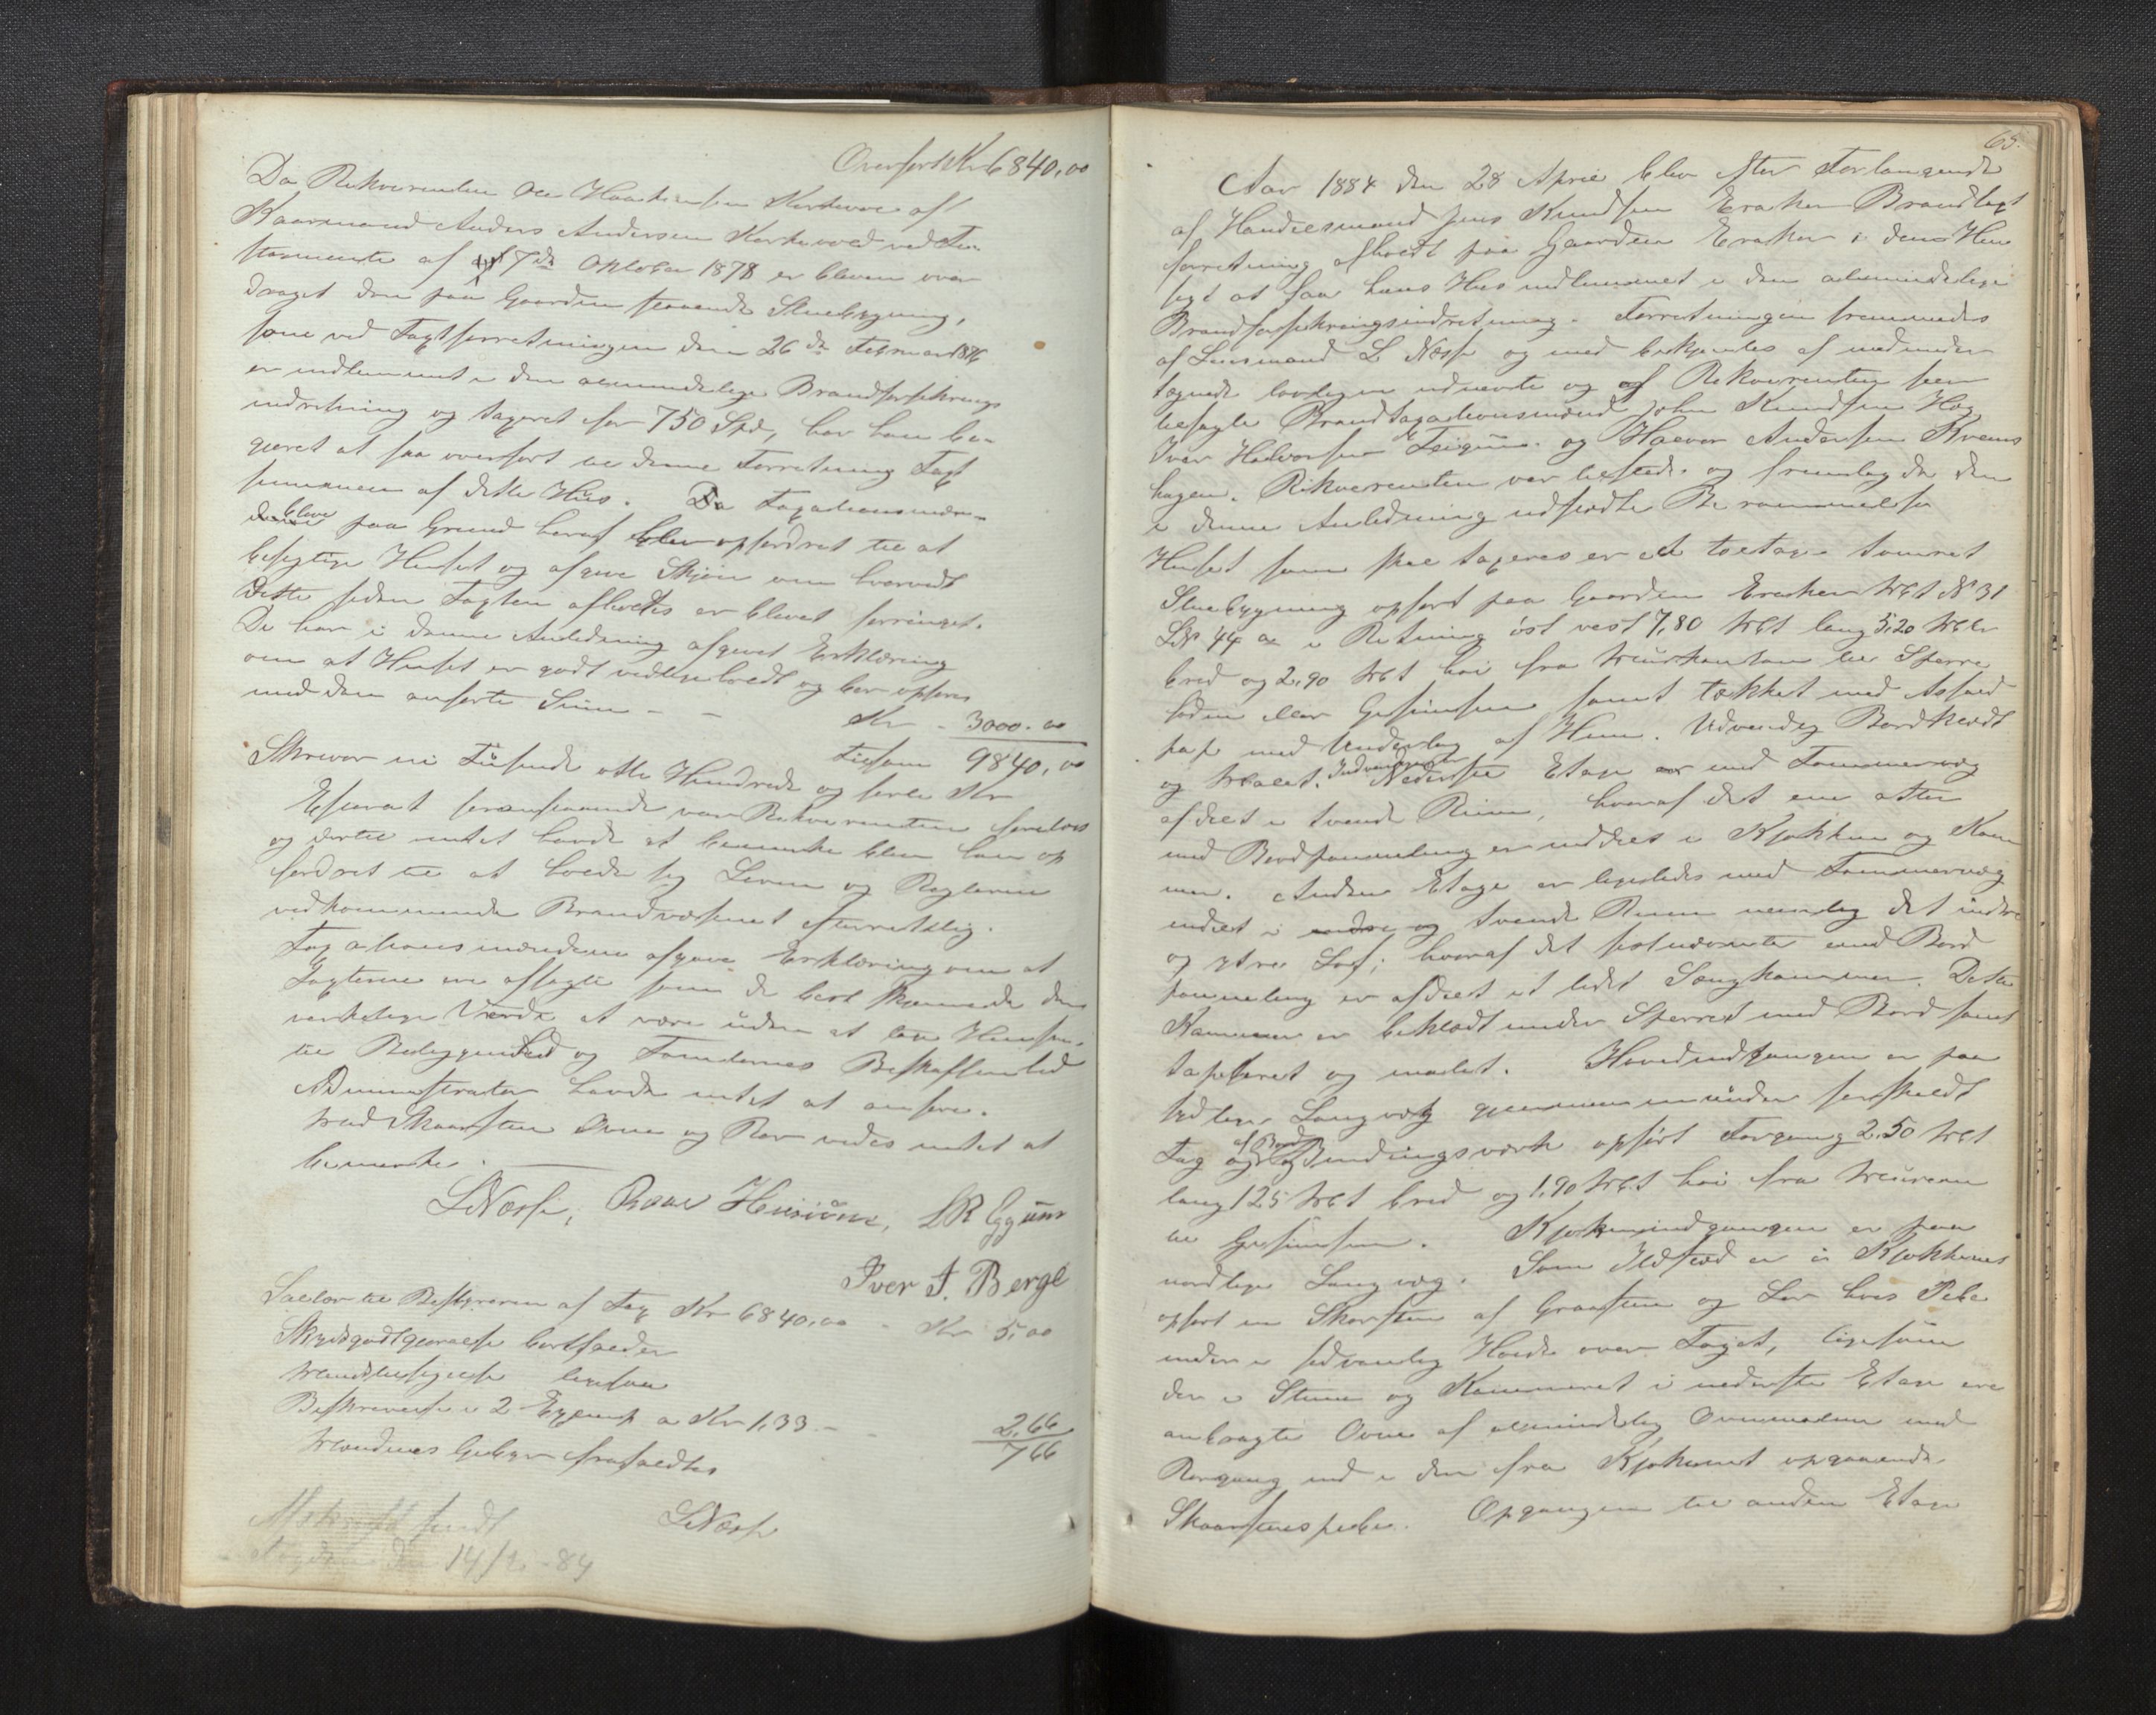 Overført Kr 6840,00
Da Rekvirenten Ole Haakensen Korkevoe af
Kaarmand Anders Andersen Korkevold ved Te-
stamente af 7de Oktober 1878 er bleven over
draget den paa Gaarden staaende Stuebygning,
som ved Taxtforretningen den 26de Februar 1876
er indlemmet i den almindelige Brandforsikrings
indretning og taxeret for 750 Spd, har han be-
gjæret at faa overført til denne Forretning Taxt
summen af dette Hus. Da Taxationsmæn-
dene bleve paa Grund heraf blev opfordret til at
besigtige Huset og afgive Skjøn om hvorvidt
dette siden Taxten afholdtes er blevet forringet.
De har i denne Anledning afgivet Erklæring
om at Huset er godt vedligeholdt og bør opføres
med den anførte Sum - - Kr - 3000.00
tilsam 9840,00
Skriver ni Tusende otte Hundrede og førti Kr
Efterat foranstaaende var Rekvirenten forelæst
og dertil intet havde at bemærke blev han op
fordret til at holde sig Loven og Reglerne
vedkommende Brandvæsenet efterrettelig.
Taxationsmændene afgave Erklæring om at
Taxterne ere afsagte som de bedst skjønnede den
virkelige Værdi at være uden at tage Hensyn
til Beliggenhed og Tomternes Beskaffenhed
Administrator havde intet at anføre.
Ved Skorsten Ovne og Rør vides intet at
bemærke.
L Næss, Roar Husum, L R Eggum
Iver J. Berge
Sallær til Bestyreren af Tax Kr 6840,00 - Kr 5,00
Skydsgodtgjørelse bortfalder
Mændsbesigelse ligesaa
Beskrivelse i 2 Exemp a Kr 1,33 - - 2,66
7 66
Mændenes Gebyr frafaldtes
L Næss
Afskrift sendt
den 14/ -84
65.
Aar 1884 den 28 April blev efter Forlangende
af Handelsmand Jens Knudsen Eraker Brandtaxt
forretning afholdt paa Gaarden Eraker i den Hen
sigt at faa hans Hus indlemmet i den almindelige
Brandforsikringsindretning. Forretningen fremmedes
af Lensmand L Næss og med betjentes af med under
tegnede lovligen udnævnte og af Rekvirenten hen
besagte Brandtaxationsmænd John Knudsen Hæg
Iver Halvorsen Teigum og Halvor Andersen Kvams
hagen. Rekvirenten var tilstede og fremlagde den
i denne Anledning udstædte Berammelse
Huset som skal taxeres er et toetages tømret
Stuebygning opført paa Gaarden Eraker Mt N 31
LN 44 a i Retning øst vest 7,80 Mt lang 5,20 Mtr
bred og 2,90 Mt høi fra Murkanten til Sperre
foden eller Gesimsen samt tækket med Asfalt
pap med Underlag af Hun. Udvendig Bordklædt
og Malet. Indvendig er Nederste Etage med Tømmervæg
afdelt i tvende Rum, hvoraf det ene atter
med Bordpanneling er inddelt i Kjøkken og Kam
mer. Anden Etage er ligeledes med Tømmervæg
inddelt i tvende Rum nemlig det indre
og ytre Loft; hvoraf det sistnævnte med Bord
panneling er afdelt et lidet Sængkammer. Dette
Kammer er beklædt under Sperret med Bord samt
tapseret og malet. Hovedindgangen er paa
sydlige Langvæg gjennem en under serskildt
Tag af Bord og Bindingsværk opført Forgang 2.50 Mt
lang 125 Mt bred og 1,90 Mt høi fra Muren
til Gesimsen. Kjøkkenindgangen er paa
nordlige Langvæg. Som Ildsted er i Kjøkkenet
opført en Skorsten af Graasten og Ler hvis Pibe
ender i sædvanlig Høide over Taget, ligesom
der i Stuen og Kammeret i nederste Etage ere
anbragte Ovne af almindelig Ovnmaterie med
Rørgang ind i den fra Kjøkkenet opgaaende
Skorstenspibe. Opgangen til anden Etage